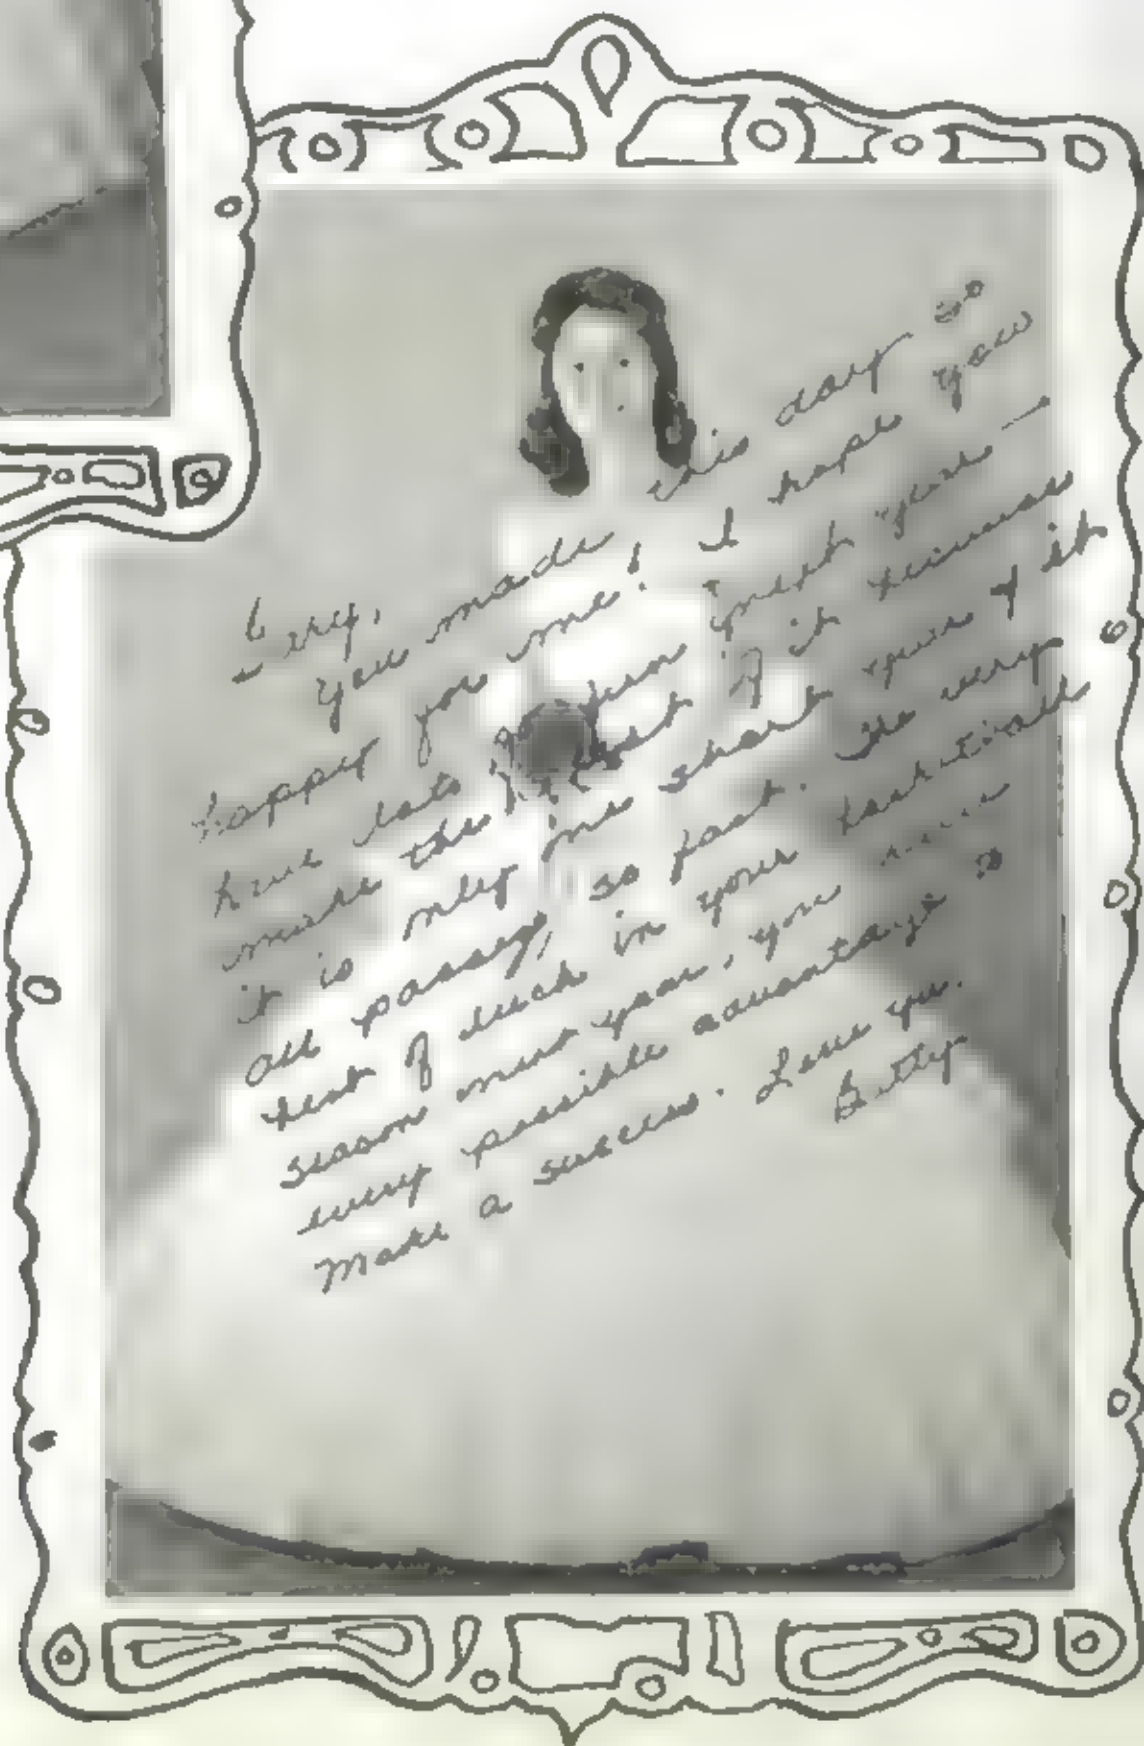 you made this day so
happy for me! I hope you
have lots of fun next year —
make the most of it because
it is only one short year & it
all passes, so fast. The very
best of luck in your basketball
season next year, you
every possible advantage to
make a success. Love you.
Betty